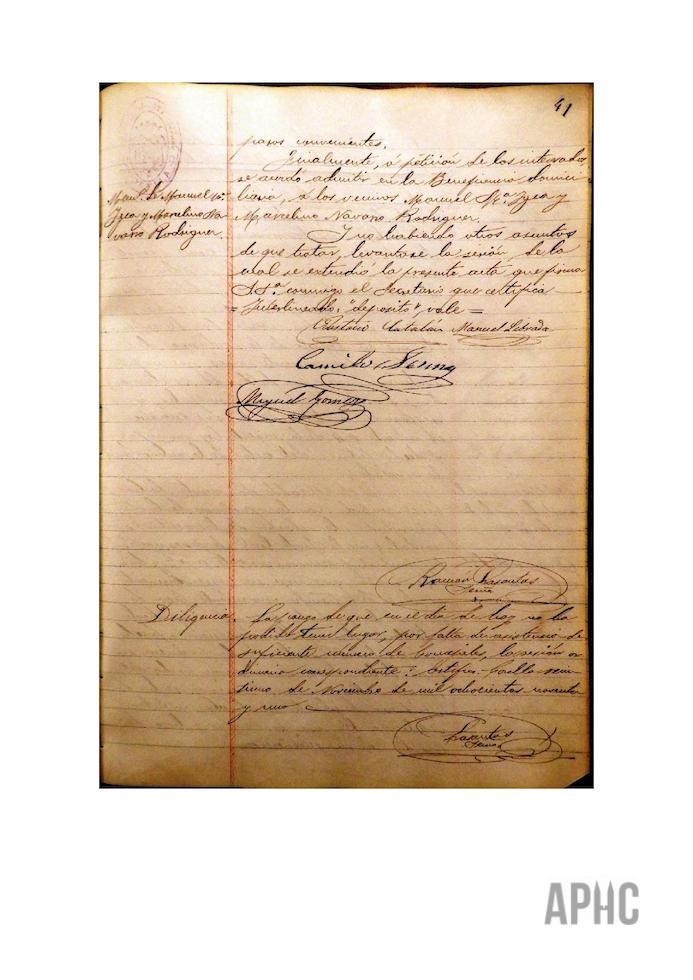 41
pasos convenientes.
Finalmente, á petición de los interesados,
se acordó admitir en la Beneficencia domici-
liaria, á los vecinos Manuel Mª Zrea y
Marcelino Navarro Rodriguez.
Manuel Mª
Zrea y Marcelino Na-
varro Rodriguez.
Y no habiendo otros asuntos
de que tratar, levantose la sesión, de la
cual se extendió la presente acta que firma
S.Sª. conmigo el Secretario que certifica
= Interlineado: "deposito", vale =
Catalan Manuel Librado
Camilo Senra
Miguel Gomez
Román Basantas
Senra
Diligencia.
La pongo de que en el dia de hoy no ha
podido tener lugar, por falta de asistencia de
suficiente número de Concejales, la sesión or-
dinaria correspondiente: certifico. Coello vein-
tiuno de Noviembre de mil ochocientos noventa
y uno
Basantas
Senra
APHC